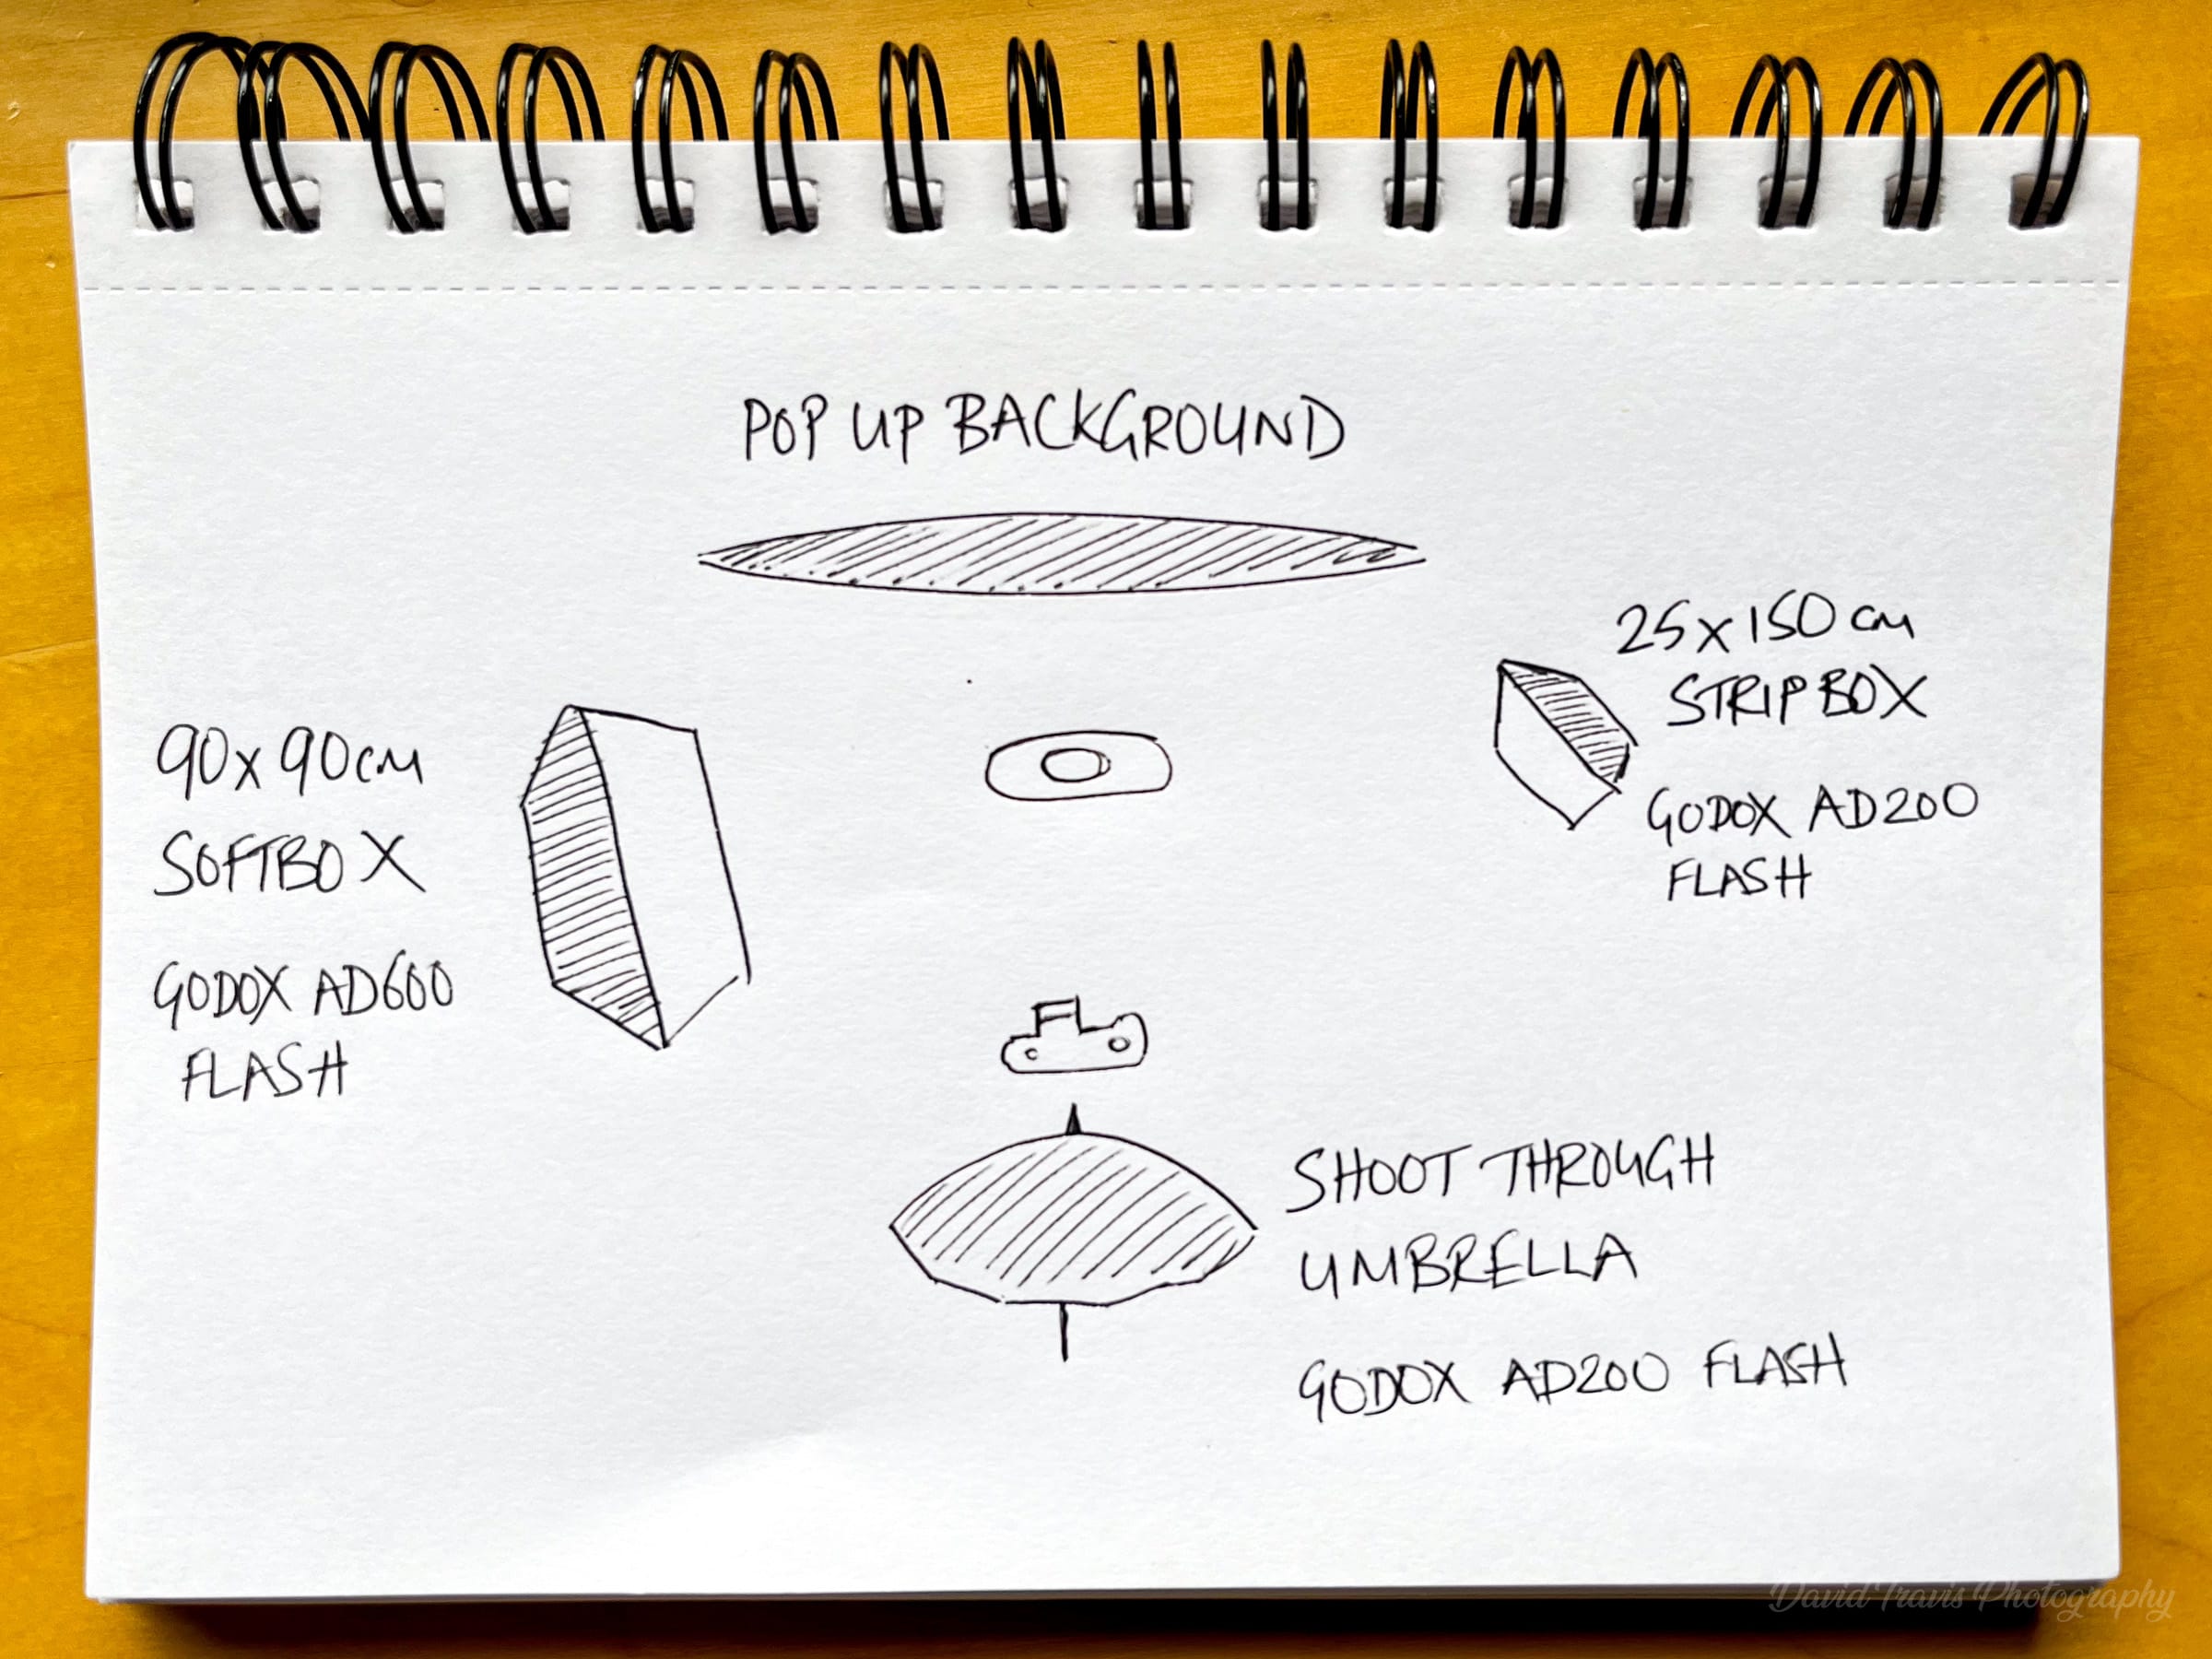 POP UP BACKGROUND
25x150cm
STRIPBOX
GODOX AD200
FLASH
90x90cm
SOFTBOX
GODOX AD600
FLASH
SHOOT THROUGH
UMBRELLA
GODOX AD200 FLASH
David Travis Photography